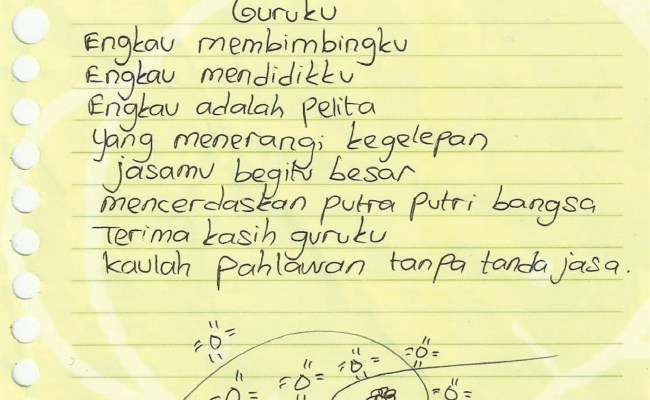 Guruku
Engkau membimbingku
Engkau mendidikku
Engkau adalah pelita
Yang menerangi kegelepan
jasamu begitu besar
mencerdaskan putra putri bangsa
Terima kasih guruku
kaulah pahlawan tanpa tanda jasa.